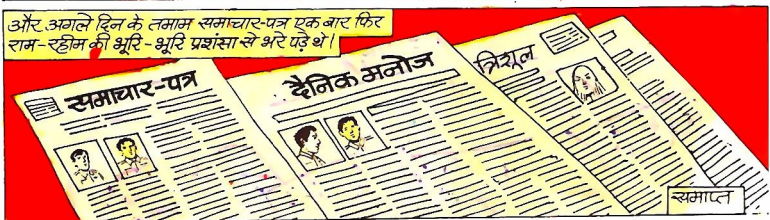 और अगले दिन के तमाम समाचार-पत्र एक बार फिर
राम-रहीम की भूरि-भूरि प्रशंसा से भरे पड़े थे।
समाचार-पत्र
दैनिक मनोज
त्रिशूल
समाप्त